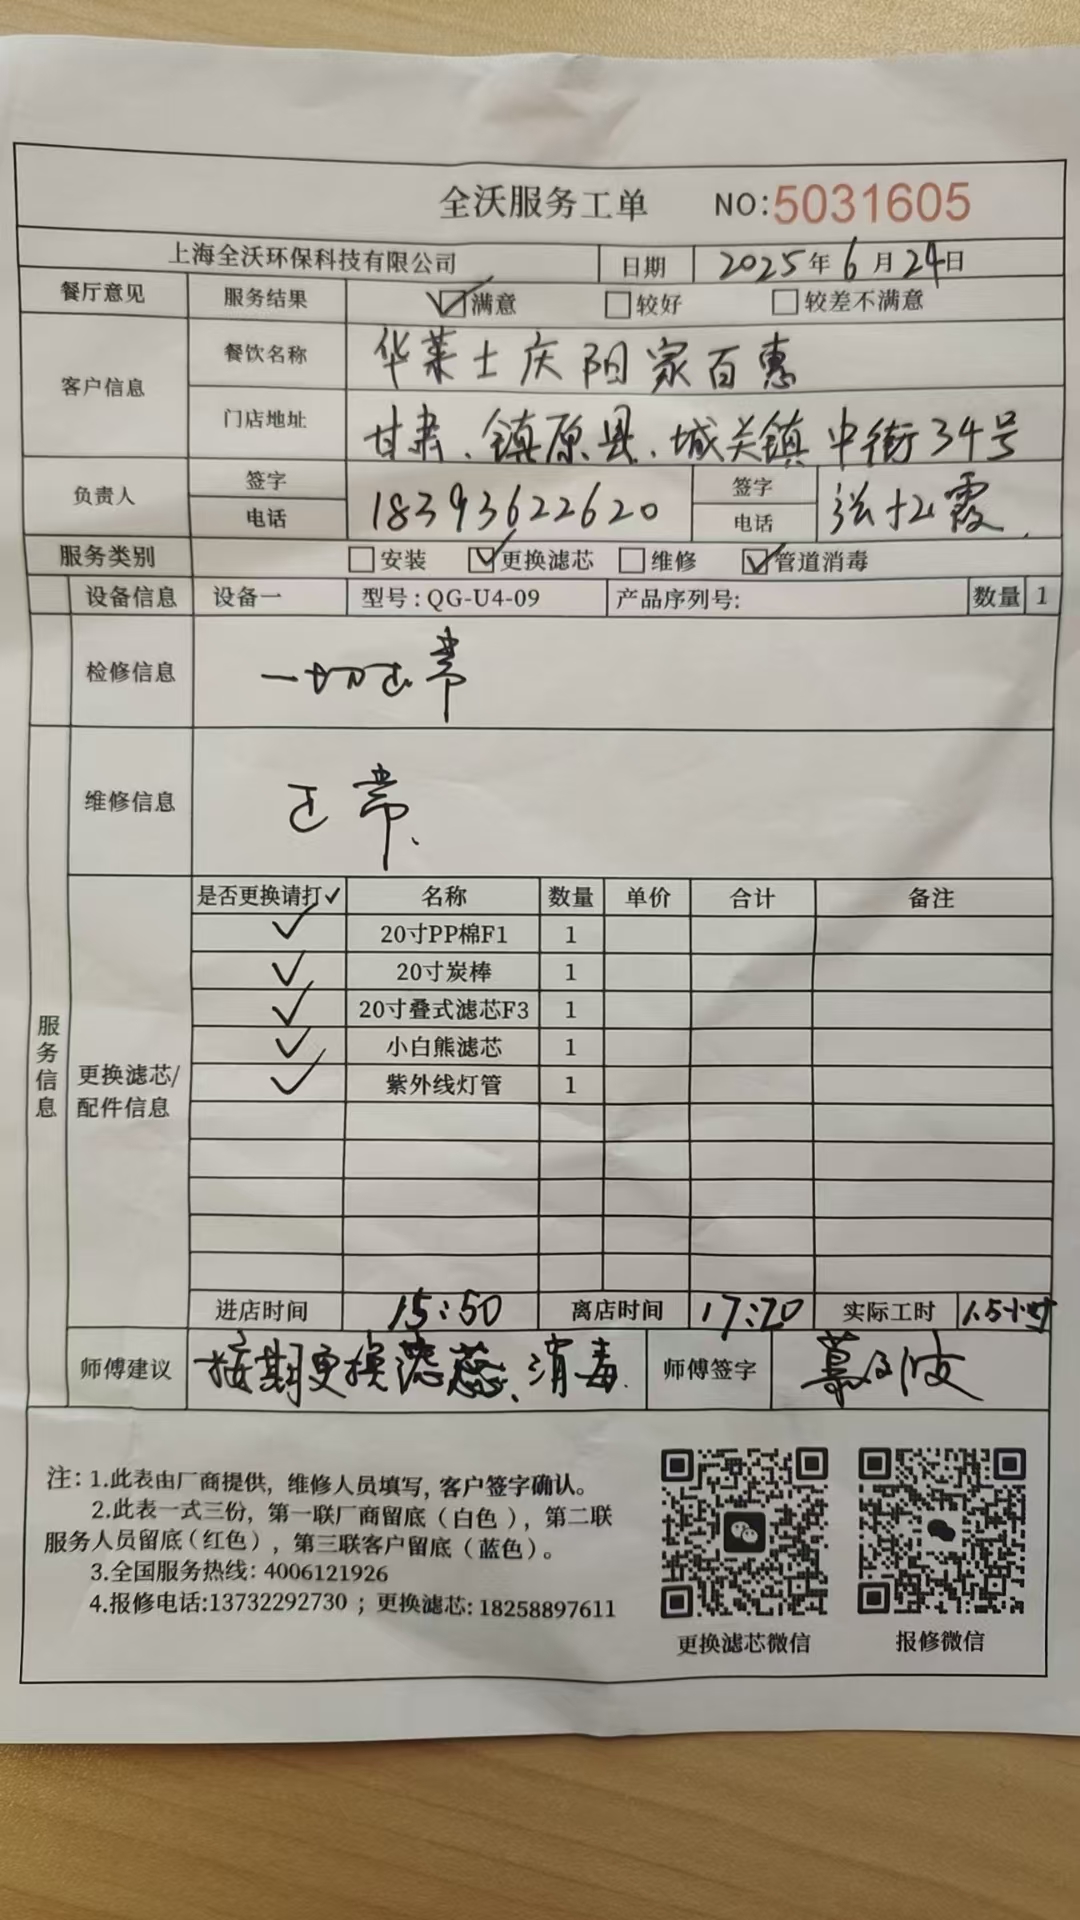 全沃服务工单 NO:5031605
上海全沃环保科技有限公司 日期 2025年6月24日
餐厅意见 服务结果 ☑满意 □较好 □较差不满意
客户信息 餐饮名称 华莱士庆阳家百惠
门店地址 甘肃、镇原县、城关镇中街34号
负责人 签字 电话 18393622620 签字 电话 张 霞
服务类别 □安装 ☑更换滤芯 □维修 ☑管道消毒
设备信息 设备一 型号:QG-U4-09 产品序列号: 数量 1
检修信息 一切正常
服务信息
维修信息 正常.
更换滤芯/配件信息
是否更换请打✓ 名称 数量 单价 合计 备注
✓ 20寸PP棉F1 1
✓ 20寸炭棒 1
✓ 20寸叠式滤芯F3 1
✓ 小白熊滤芯 1
✓ 紫外线灯管 1
进店时间 15:50 离店时间 17:20 实际工时 1.5小时
师傅建议 按期更换滤蕊、消毒. 师傅签字 慕 波
注: 1.此表由厂商提供，维修人员填写, 客户签字确认。
2.此表一式三份，第一联厂商留底（白色），第二联
服务人员留底（红色），第三联客户留底（蓝色）。
3.全国服务热线: 4006121926
4.报修电话:13732292730 ；更换滤芯: 18258897611
更换滤芯微信 报修微信